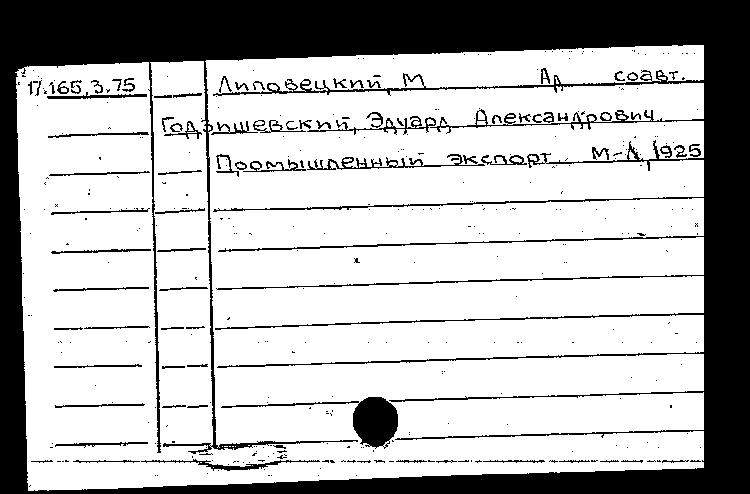 17.165,3.75 Липовецкий, М Ад соавт.
Годзишевский, Эдуард Александрович.
Промышленный экспорт М-Л, 1925